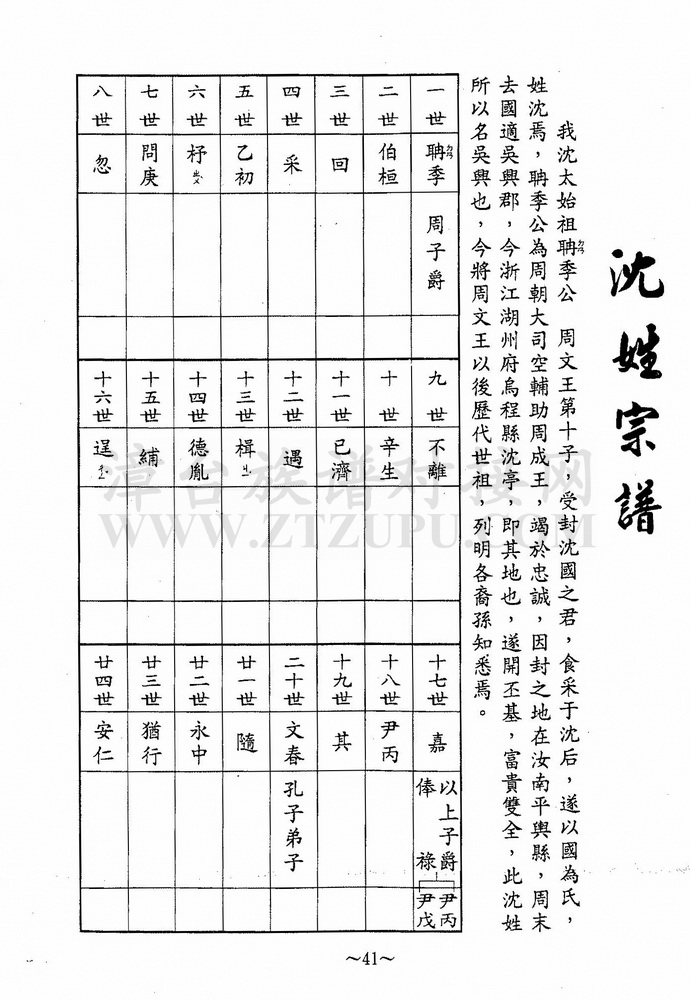 沈姓宗譜
我沈太始祖聃季公　周文王第十子，受封沈國之君，食采于沈后，遂以國為氏，
姓沈焉，聃季公為周朝大司空輔助周成王，竭於忠誠，因封之地在汝南平輿縣，周末
去國適吳興郡，今浙江湖州府烏程縣沈亭，即其地也，遂開丕基，富貴雙全，此沈姓
所以名吳興也，今將周文王以後歷代世祖，列明各裔孫知悉焉。
一世 聃季 周子爵
二世 伯桓
三世 回
四世 采
五世 乙初
六世 杼
七世 問庚
八世 忽
九世 不離
十世 辛生
十一世 已濟
十二世 遇
十三世 楫
十四世 德胤
十五世 紨
十六世 逞
十七世 嘉 以上子爵俸祿 尹丙 尹戊
十八世 尹丙
十九世 其
二十世 文春 孔子弟子
廿一世 隨
廿二世 永中
廿三世 猶行
廿四世 安仁
漳台族谱对接网
WWW.ZTZUPU.COM
～41～